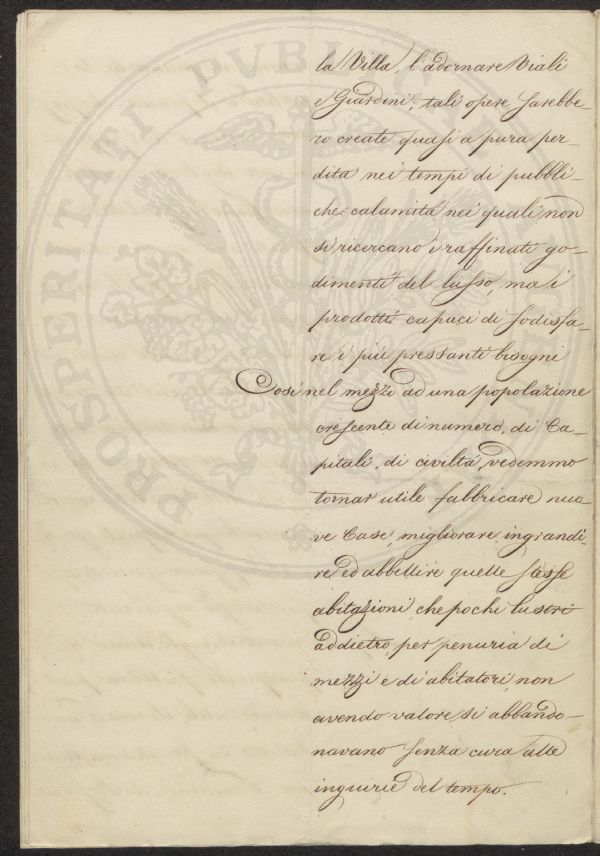 la Villa, l'adornare Viali
e Giardini; tali opere sarebbe
ro create quasi a pura per-
dita nei tempi di pubbli-
che calamità nei quali non
si ricercano i raffinati go-
dimenti del lusso, ma i
prodotti capaci di sodisfa-
re i più pressanti bisogni
Così nel mezzo ad una popolazione
crescente di numero, di Ca-
pitali, di civiltà, vedemmo
tornar utile fabbricare nuo
ve Case, migliorare, ingrandi-
re ed abbellire quelle stesse
abitazioni, che pochi lustri
addietro, per penuria di
mezzi e di abitatori, non
avendo valore, si abbando-
navano senza cura alle
ingiurie del tempo.
PROSPERITATI PUBLICAE